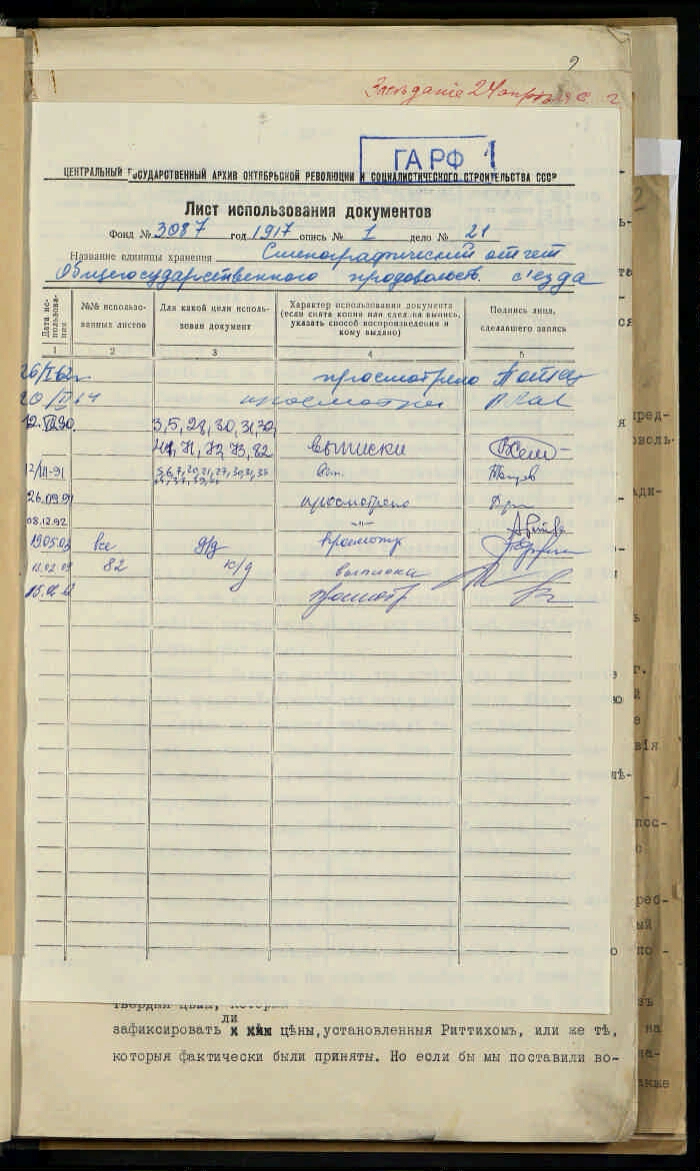 2
Заседание 24 апреля
ГАРФ 1
ЦЕНТРАЛЬНЫЙ ГОСУДАРСТВЕННЫЙ АРХИВ ОКТЯБРЬСКОЙ РЕВОЛЮЦИИ И СОЦИАЛИСТИЧЕСКОГО СТРОИТЕЛЬСТВА СССР
Лист использования документов
Фонд № 3087 год 1917 опись № 1 дело № 21
Название единицы хранения Стенографический отчет
Общегосударственного продовольств. съезда
Дата использования №№ использованных листов Для какой цели использован документ Характер использования документа (если снята копия или сделана выпись, указать способ воспроизведения и кому выдано) Подпись лица, сделавшего запись
1 2 3 4 5
26/I 62г просмотрено
просмотрен
12.VII.90. 3,5,28,30,31,32,
41,71,72,73,82 выписки
12/III-91
26.09.91 просмотрено
08.12.92 -"-
19.05.03 все д/д просмотр
82 к/д выписка
просмотр
твердыя цѣны,
ли
зафиксировать цѣны,установленныя Риттихомъ, или же тѣ,
которыя фактически были приняты. Но если бы мы поставили во-